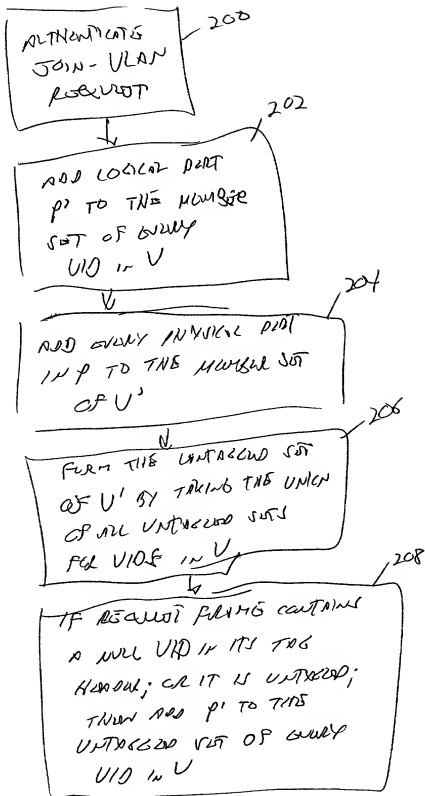 200
AUTHENTICATE
JOIN-VLAN
REQUEST
202
ADD LOGICAL PORT
P' TO THE MEMBER
SET OF EVERY
VID IN V
204
ADD EVERY PHYSICAL PORT
IN P TO THE MEMBER SET
OF V'
206
FORM THE UNTAGGED SET
OF V' BY TAKING THE UNION
OF ALL UNTAGGED SETS
FOR VIDS IN V
208
IF REQUEST FRAME CONTAINS
A NULL VID IN ITS TAG
HEADER; OR IT IS UNTAGGED;
THEN ADD P' TO THE
UNTAGGED SET OF EVERY
VID IN V